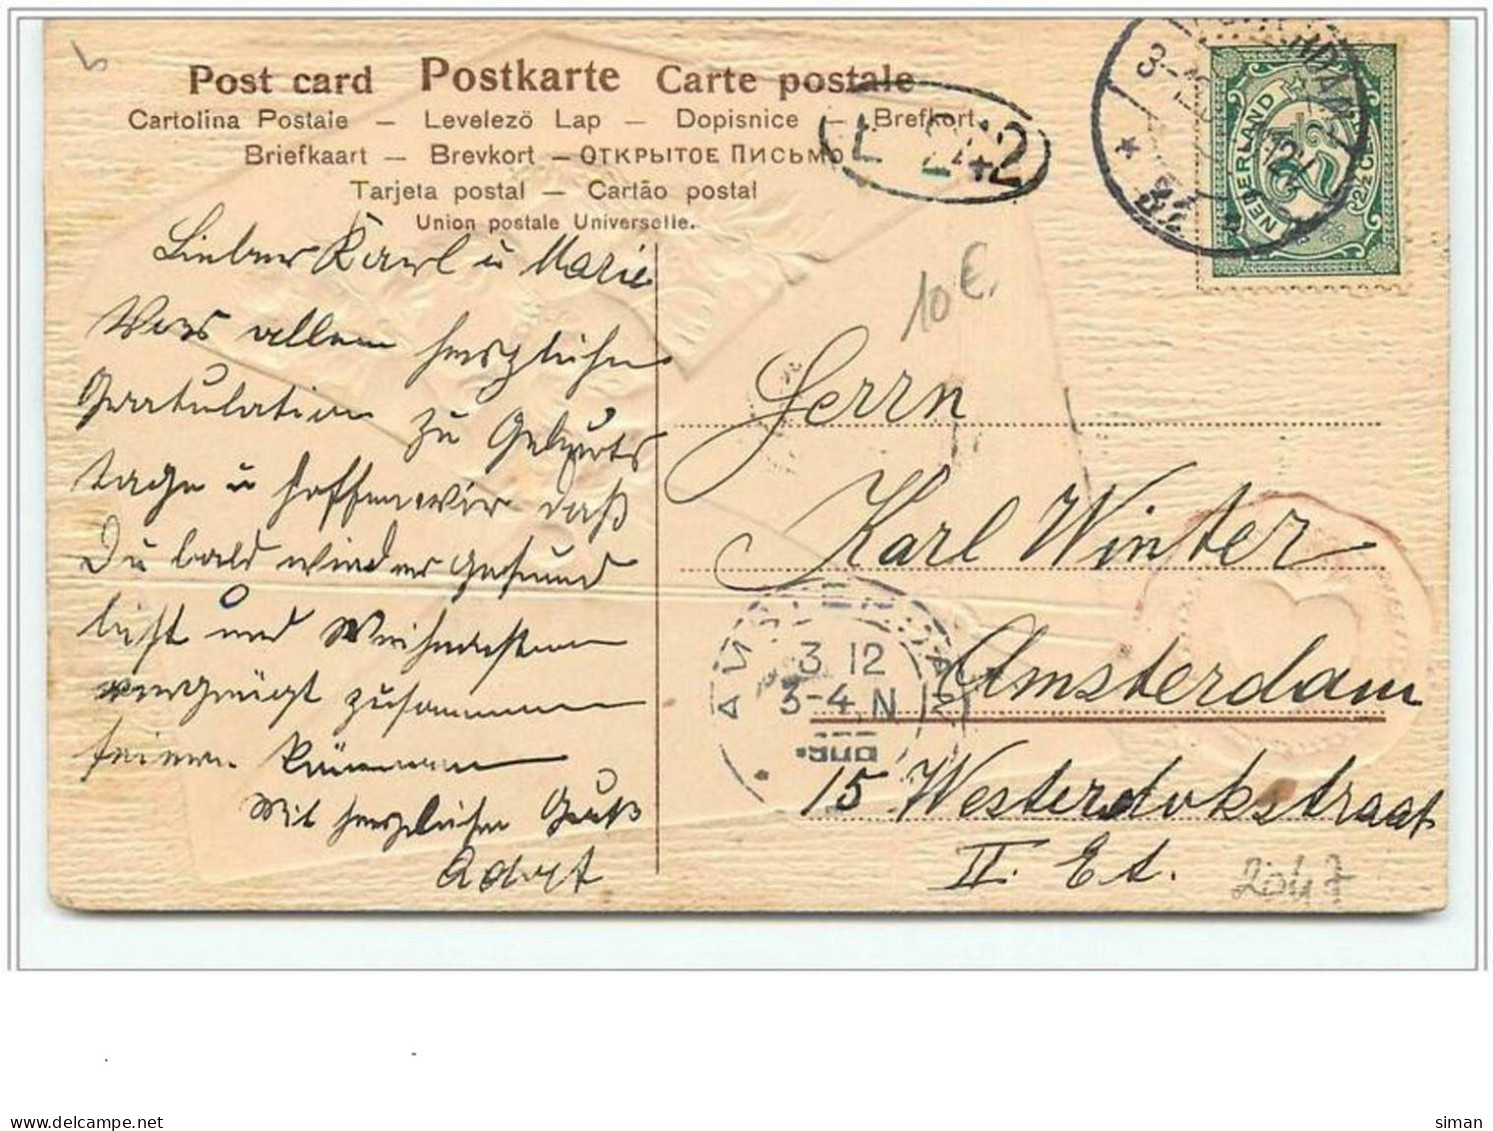 Post card Postkarte Carte postale
Cartolina Postale — Levelező Lap — Dopisnice — Brefkort
Briefkaart — Brevkort — ОТКРЫТОЕ ПИСЬМО
Tarjeta postal — Cartão postal
Union postale Universelle.
L 242
NEDERLAND
2½
2½ C
10 €.
Lieber Karl u Marie
Vor allem herzliche
Gratulation zu Geburts
tage u hoffen wir daß
Du bald wieder gesund
bist und Weihnachten
vergnügt zusammen
feiern können
Mit herzlichen Gruß
Adolf
Herrn
Karl Winter
Amsterdam
15 Westerdokstraat
II. Et.
AMSTERDAM
3 12
3-4 N
2047
siman
www.delcampe.net